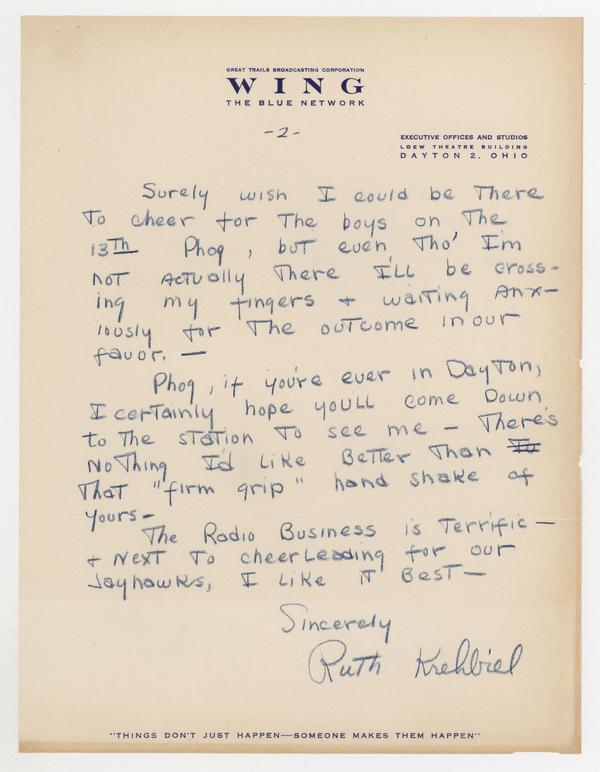 GREAT TRAILS BROADCASTING CORPORATION
WING
THE BLUE NETWORK
-2-
EXECUTIVE OFFICES AND STUDIOS
LOEW THEATRE BUILDING
DAYTON 2, OHIO
Surely wish I could be There
To cheer for The boys on The
13Th Phog, but even Tho' I'm
not actually There I'll be cross-
ing my fingers + waiting anx-
iously for The outcome in our
favor. —
Phog, if you're ever in Dayton,
I certainly hope you'll come Down
to The station To see me — There's
NoThing I'd Like Better Than To
That "firm grip" hand shake of
yours-
The Radio Business is Terrific —
+ Next To cheerleading for our
Jayhawks, I Like iT BesT —
Sincerely
Ruth Krehbiel
"THINGS DON'T JUST HAPPEN—SOMEONE MAKES THEM HAPPEN"